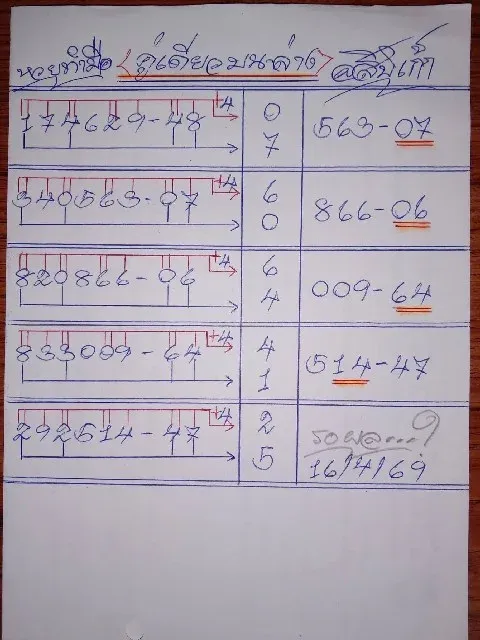 หวยทำมือ <คู่เดียวบนล่าง>
+4
174629-48 0 7 563-07
+4
340563-07 6 0 866-06
+4
820866-06 6 4 009-64
+4
833009-64 4 1 514-47
+4
292514-47 2 5 รอผล...?
16/4/69